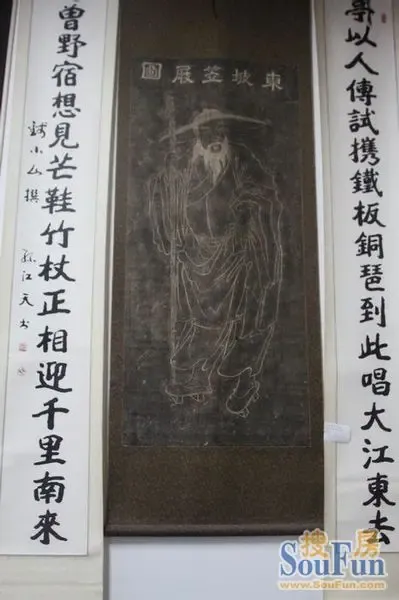 亭以人傳試攜鐵板銅琶到此唱大江東去
東坡笠屐圖
曾野宿想見芒鞋竹杖正相迎千里南來
錢小山撰
江天書
搜房
SouFun
www.SouFun.com